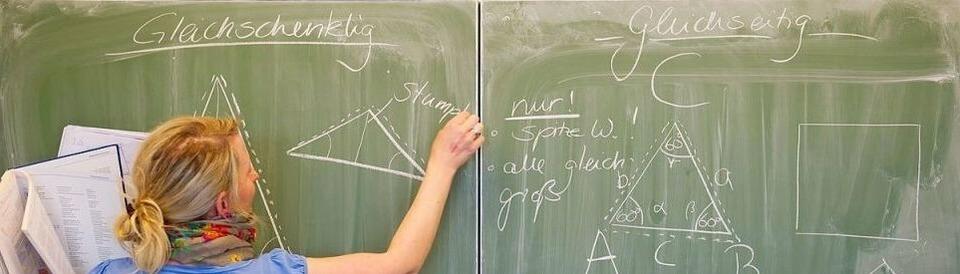 Gleichschenklig
Stump
Gleichseitig
C
nur!
• spitze W.!
• alle gleich
groß
60°
γ
b
a
α
β
60°
60°
A
C
B